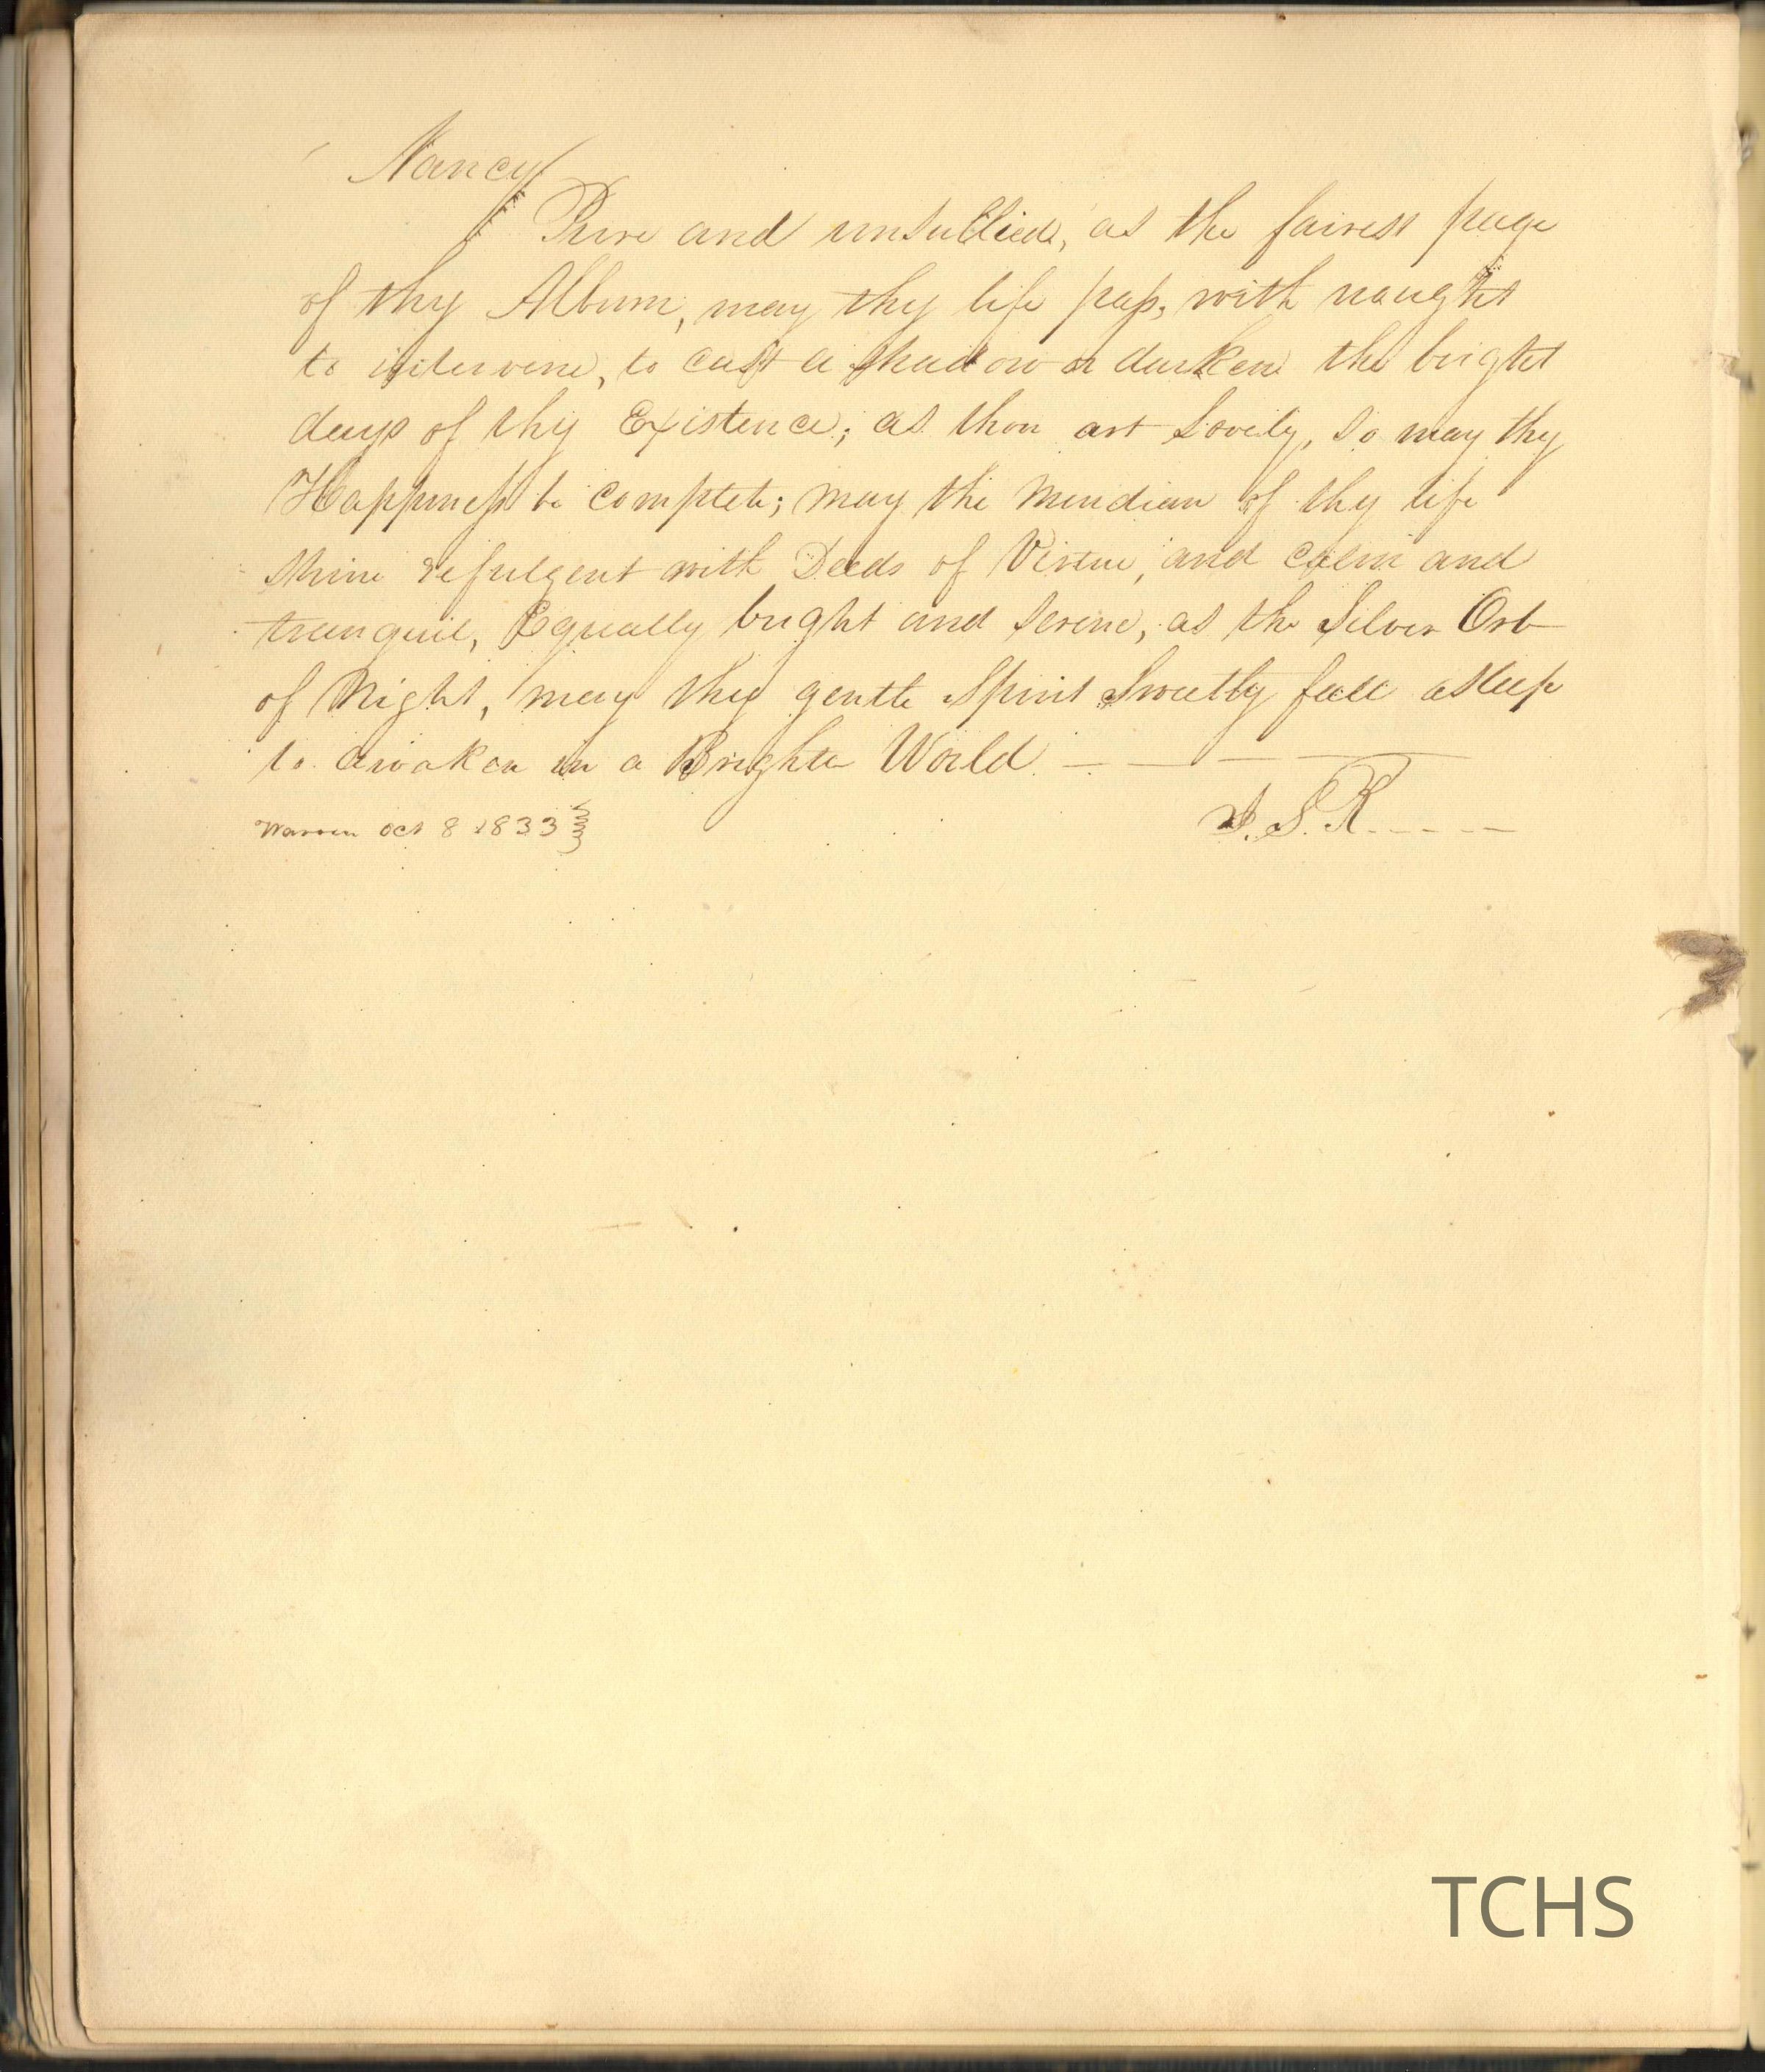 Nancy
Pure and unsullied, as the fairest page
of thy Album, may thy life pass, with naught
to intervene, to cast a shadow or darken the bright
days of thy Existence; as thou art Lovely, so may thy
Happiness be complete; may the Meridian of thy life
shine refulgent with Deeds of Virtue, and calm and
tranquil, Equally bright and serene, as the Silver Orb
of Night, may thy gentle Spirit Sweetly fall asleep
to awaken in a Brighter World
Warren Oct 8 1833
S. R.
TCHS